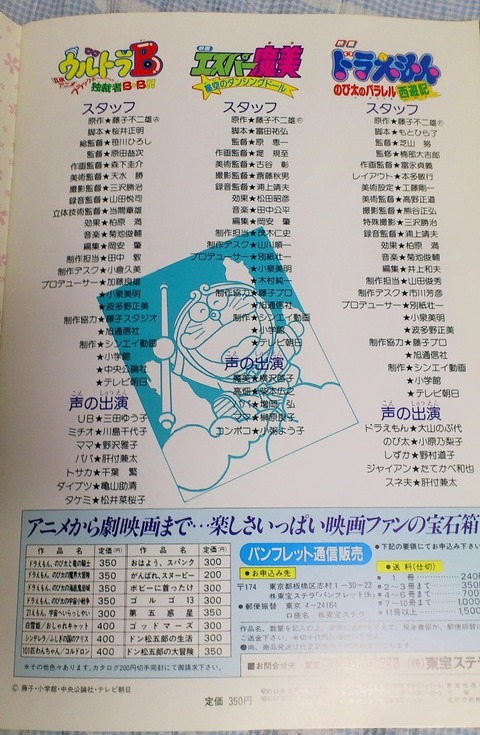 映画
ウルトラB
独裁者B・B!!
スタッフ
原作★藤子不二雄Ⓐ
脚本★桜井正明
総監督★笹川ひろし
監督★原田益次
作画監督★森下圭介
美術監督★天水 勝
撮影監督★三沢勝治
録音監督★山田悦司
立体技術監督★当間章雄
効果★柏原 満
音楽★菊池俊輔
編集★岡安 肇
制作担当★田中 敦
制作デスク★小倉久美
プロデューサー★加藤良雄
★小泉美明
★波多野正美
制作協力★藤子スタジオ
★旭通信社
制作★シンエイ動画
★小学館
★中央公論社
★テレビ朝日
声の出演
UB★三田ゆう子
ミチオ★川島千代子
ママ★野沢雅子
パパ★肝付兼太
トサカ★千葉 繁
ダイブツ★亀山助清
タケミ★松井菜桜子
映画
エスパー魔美
星空のダンシングドール
スタッフ
原作★藤子不二雄Ⓕ
脚本★富田祐弘
監督★原 恵一
作画監督★堤 規至
美術監督★古谷 彰
撮影監督★斎藤秋男
録音監督★浦上靖夫
効果★松田昭彦
音楽★田中公平
編集★岡安 肇
制作担当★茂木仁史
制作デスク★山川順一
プロデューサー★別紙壮一
★小泉美明
★木村純一
制作協力★藤子プロ
★旭通信社
制作★シンエイ動画
★小学館
★テレビ朝日
声の出演
魔美★横沢啓子
高畑★柴本広之
パパ★増岡 弘
ママ★榊原良子
コンポコ★小粥よう子
映画
ドラえもん
のび太のパラレル西遊記
スタッフ
原作★藤子不二雄Ⓕ
脚本★もとひら了
監督★芝山 努
監修★楠部大吉郎
作画監督★富永貞義
レイアウト★本多敏行
美術設定★工藤剛一
美術監督★高野正道
撮影監督★熊谷正弘
特殊撮影★三沢勝治
録音監督★浦上靖夫
効果★柏原 満
音楽★菊池俊輔
編集★井上和夫
制作担当★山田俊秀
制作デスク★市川芳彦
プロデューサー★別紙壮一
★小泉美明
★波多野正美
制作協力★藤子プロ
★旭通信社
制作★シンエイ動画
★小学館
★テレビ朝日
声の出演
ドラえもん★大山のぶ代
のび太★小原乃梨子
しずか★野村道子
ジャイアン★たてかべ和也
スネ夫★肝付兼太
アニメから劇映画まで…楽しさいっぱい映画ファンの宝石箱
作品名 定価(円) 作品名 定価(円)
ドラえもん、のび太と竜の騎士 350 おはよう、スパンク 300
ドラえもん、のび太の魔界大冒険 350 がんばれ、スヌーピー 200
ドラえもん、のび太の海底鬼岩城 350 ボビーに首ったけ 300
ドラえもん、のび太の宇宙小戦争 350 ゴルゴ13 300
21えもん、宇宙へいらっしゃい 300 第五惑星 350
白雪姫/おしゃれキャット 400 ゴッドマーズ 300
シンデレラ/ふしぎの国のアリス 400 ドン松五郎の生活 300
101匹わんちゃん/コルドロン 400 ドン松五郎の大冒険 350
★その他色々あります。カタログ200円切手同封にて御請求下さい。
パンフレット通信販売
●下記の要領にてお申込み下さい
●お申込み先
〒174 東京都板橋区志村1-30-22
㈱東宝ステラ「パンフレット係」
●郵便振替 東京4-24184
口座名 ㈱東宝ステラ
●送料(仕切)
1冊 240円
2〜3冊
4〜6冊 700
7〜10冊 1,000
11冊以上 1,500
■お問合せ先
©藤子・小学館・中央公論社・テレビ朝日
定価 350円